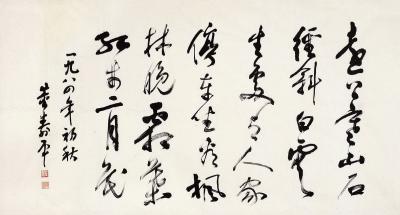 远上寒山石
径斜白云
生处有人家
停车坐爱枫
林晚霜叶
红于二月花
一九八四年初秋
董寿平